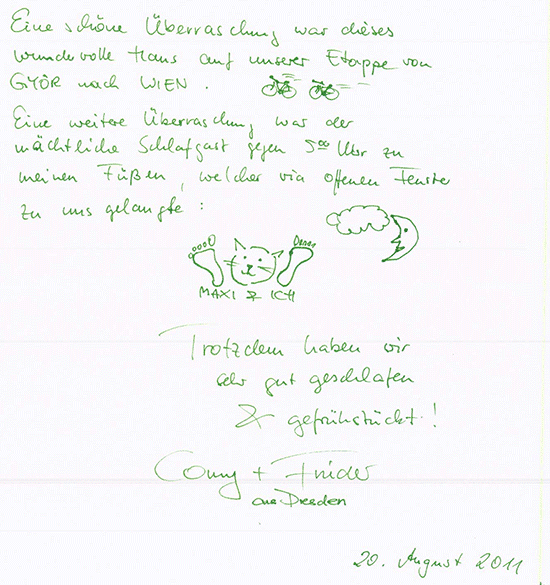 Eine schöne Überraschung war dieses
wundervolle Haus auf unserer Etappe von
GYÖR nach WIEN.
Eine weitere Überraschung war der
nächtliche Schlafgast gegen 5⁰⁰ Uhr zu
meinen Füßen, welcher via offenen Fenster
zu uns gelangte:
MAXI & ICH
Trotzdem haben wir
sehr gut geschlafen
& gefrühstückt!
Conny + Frieder
aus Dresden
20. August 2011